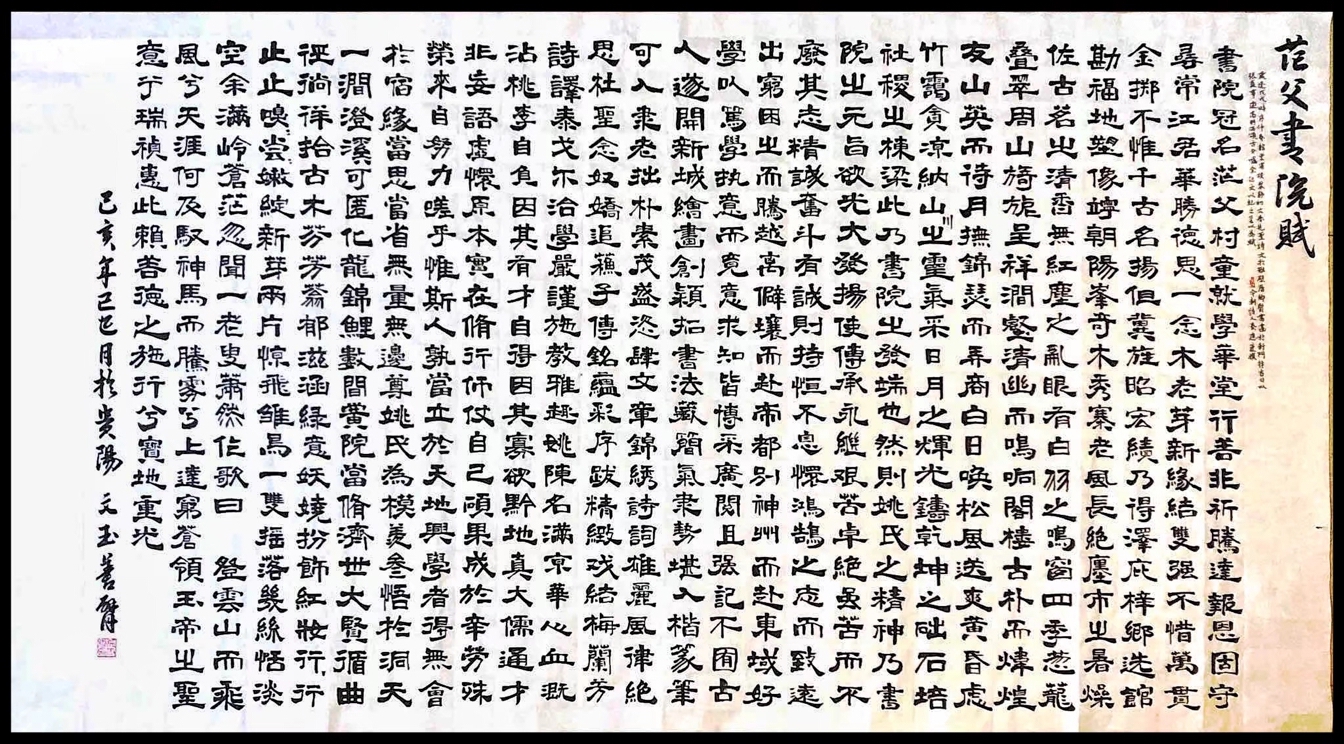 茫父書院賦
書院冠名茫父村童就學華堂行善非祈騰達報恩固守
尋常江君華勝德思一念木老芽新緣結雙强不惜萬貫
金擲不惟千古名揚但冀旌昭宏績乃得澤庇梓鄉选館
勘福地塑像竫朝陽峯奇木秀寨老風長絕廛市㞢暑燥
佐古名㞢清香無紅塵之亂眼有白羽之鳴窗四季葱蘢
疊翠周山旖旎呈祥澗壑清幽而鳴响閣樓古朴而煒煌
友山英而待月撫錦瑟而弄商白日唤松風送爽黄昏慮
竹靄貪凉納山川㞢靈氣采日月之輝光鑄乾坤之础石培
社稷㞢棟梁此乃書院㞢發端也然則姚氏之精神乃書
院㞢元旨欲光大發揚使傳承永繼艰苦卓絕虽苦而不
廢其志精誠奮斗有誠則持恒不忘懷鴻鵠之志而致遠
出窮困㞢而騰越离僻壤而赴帝都别神州而赴東域好
學以篤學执意而竟意求知皆博采廣閲且强記不囿古
人遂開新域繪畫創穎拓書法藏簡氣隶勢堪入楷篆筆
可入隶老拙朴素茂盛恣肆文章錦绣詩詞雄麗風律絕
思杜聖念奴嬌追蘇子傳銘藴彩序跋精緻戏结梅蘭芳
詩譯泰戈尔治學嚴謹施教雅趣姚陳名滿京華心血溉
沾桃李自負因其有才自得因其寡欲黔地真大儒通才
非妄語虛懷原本寔在脩行仰仗自己碩果成於辛勞殊
榮來自努力嗟乎惟斯人孰當立於天地興學者得無會
於宿緣當思當省無量無邊尊姚氏為模叁悟於洞天
一澗澄溪可匿化龍錦鯉數間黉院當脩濟世大賢循曲
徑徜徉拾古木芬芳蓊郁滋涵緑意妖嬈扮飾紅妝行行
止止嗅尝嫩綻新芽兩片惊飛雏鳥一雙摇落幾絲恬淡
空余滿岭蒼茫忽聞一老叟蕭然作歌曰 登雲山而乘
風兮天涯何及馭神馬而騰雾兮上達窮蒼領玉帝㞢聖
意兮瑞禎惠此賴善德之施行兮寶地重光
己亥年己巳月於贵陽文玉善